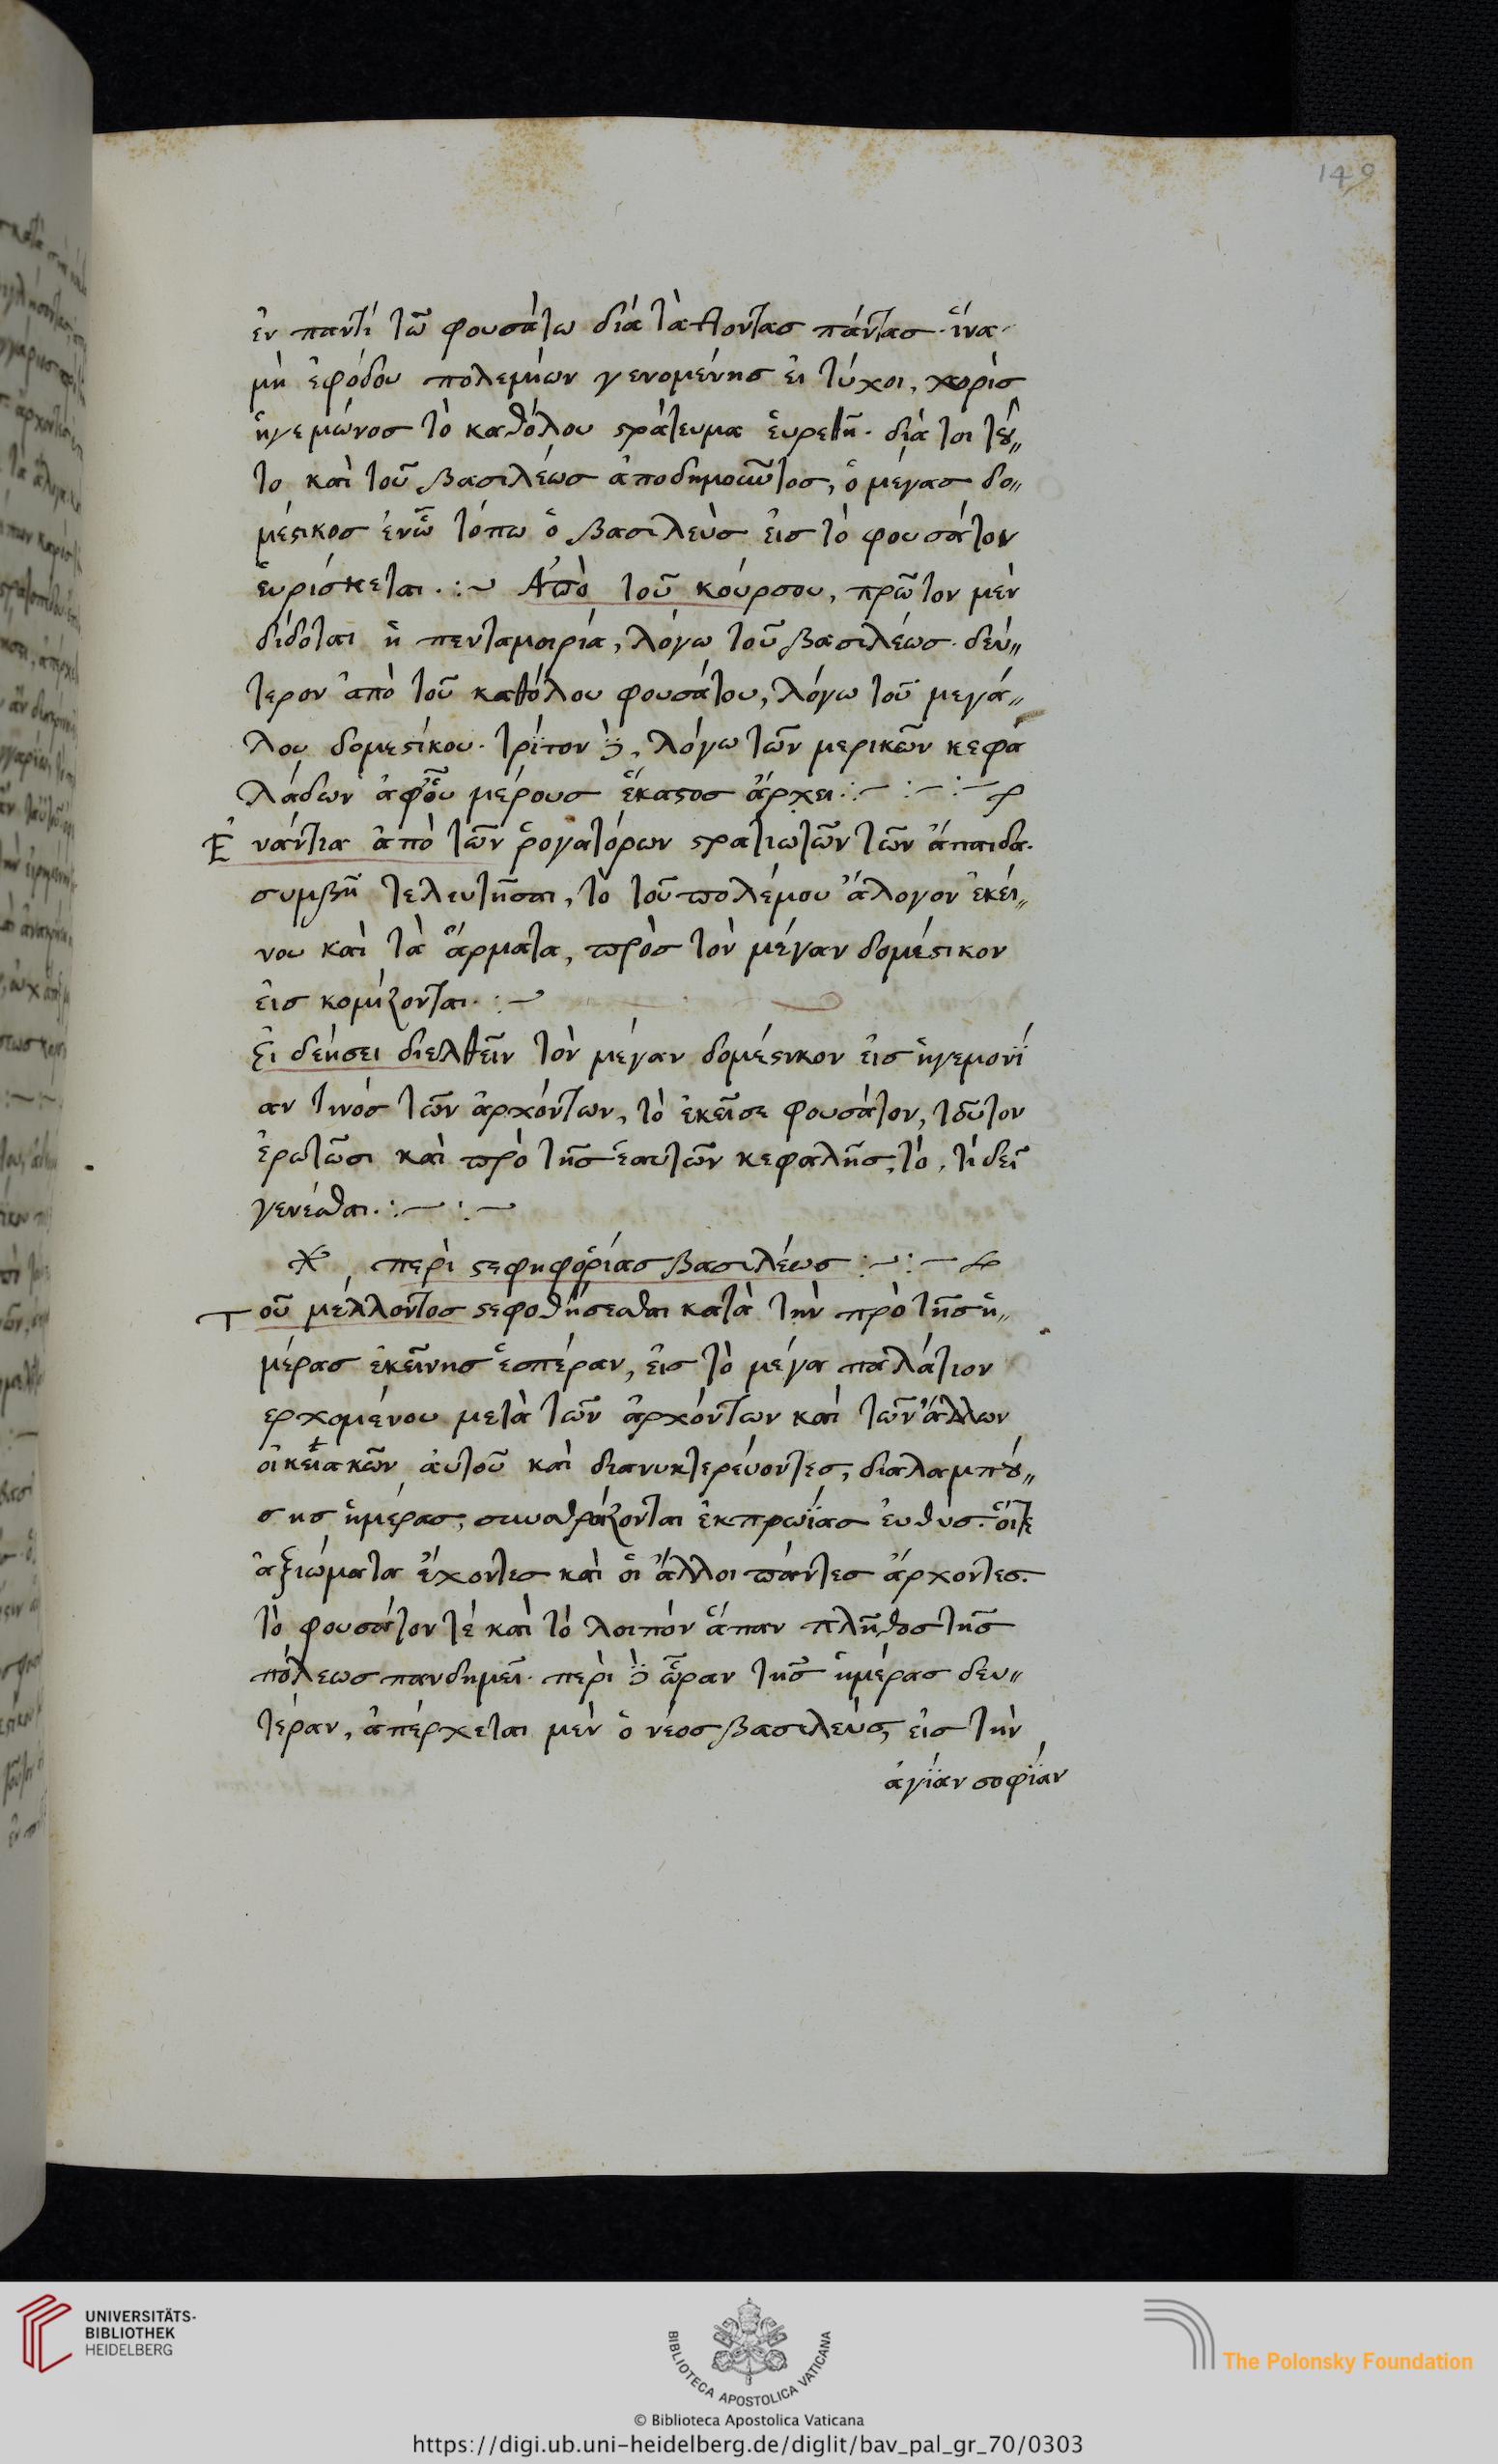 149
ἐν παντὶ τῶ φουσάτω διὰ τάττοντας πάντας. ἵνα
μὴ ἐφόδου πολεμήων γενομένης ἐι τύχοι, χορὶς
ἡγεμώνος τὸ καθόλου στράτευμα ἑυρεθῆ. διά τοι τοῦ〃
το καὶ τοῦ βασιλέως ἀποδημοῶντος, ὁ μέγας δο〃
μέστικος ἐνῶ τόπω ὁ βασιλεὺς ἐις τὸ φουσάτον
ἑυρίσκεται. :~ Ἀπὸ τοῦ κούρσου, πρῶτον μὲν
δίδοται ἡ πενταμοιρία, λόγω τοῦ βασιλέως. δεύ〃
τερον ἀπὸ τοῦ καθόλου φουσάτου, λόγω τοῦ μεγά〃
λου δομεστίκου. τρίτον, λόγω τῶν μερικῶν κεφα
λάδων ἀφοὗ μέρους ἕκαστος ἄρχει. :— :— :—
Ἐνάντια ἀπὸ τῶν ῥογατόρων στρατιωτῶν τῶν ἁπαιδα.
συμβῆ τελευτῆσαι, τὸ τοῦ πολέμου ἄλογον ἐκεί〃
νου καὶ τὰ ἅρματα, πρὸς τὸν μέγαν δομέστικον
ἐις κομίζονται. :—
Ἐι δεήσει διελθεῖν τὸν μέγαν δομέστικον ἐις ἡγεμονί
αν τινός τῶν ἀρχόντων, τὸ ἐκεῖσε φουσάτον, τοῦτον
ἐρωτῶσι καὶ πρὸ τῆς ἑαυτῶν κεφαλῆς, τὸ, τί δεῖ
γενέσθαι. :— :—
περὶ στεφηφορίας βασιλέως :~ :—
Τοῦ μέλλοντος στεφοθήσεσθαι κατὰ τὴν πρὸ τῆς ἡ〃
μέρας ἐκείνης ἑσπέραν, ἐις τὸ μέγα παλάτιον
ερχομένου μετὰ τῶν ἀρχόντων καὶ τῶν ἄλλων
οἰκειακῶν ἀυτοῦ καὶ διανυκτερέυοντες, διαλαμπού〃
σης ἡμέρας, συναθροίζονται ἐκπρωΐας ἐυθύς. ὅιτε
ἀξιώματα ἔχοντες καὶ ὁι ἄλλοι πάντες ἄρχοντες.
τὸ φουσάτον τὲ καὶ τὸ λοιπόν ἅπαν πλῆθος τῆς
πόλεως πανδημεῖ. περὶ ὥραν τῆς ἡμέρας δευ〃
τέραν, ἀπέρχεται μὲν ὁ νέος βασιλεὺς, ἐις τὴν
ἁγίαν σοφίαν
UNIVERSITÄTS-
BIBLIOTHEK
HEIDELBERG
BIBLIOTECA APOSTOLICA VATICANA
The Polonsky Foundation
© Biblioteca Apostolica Vaticana
https://digi.ub.uni-heidelberg.de/diglit/bav_pal_gr_70/0303